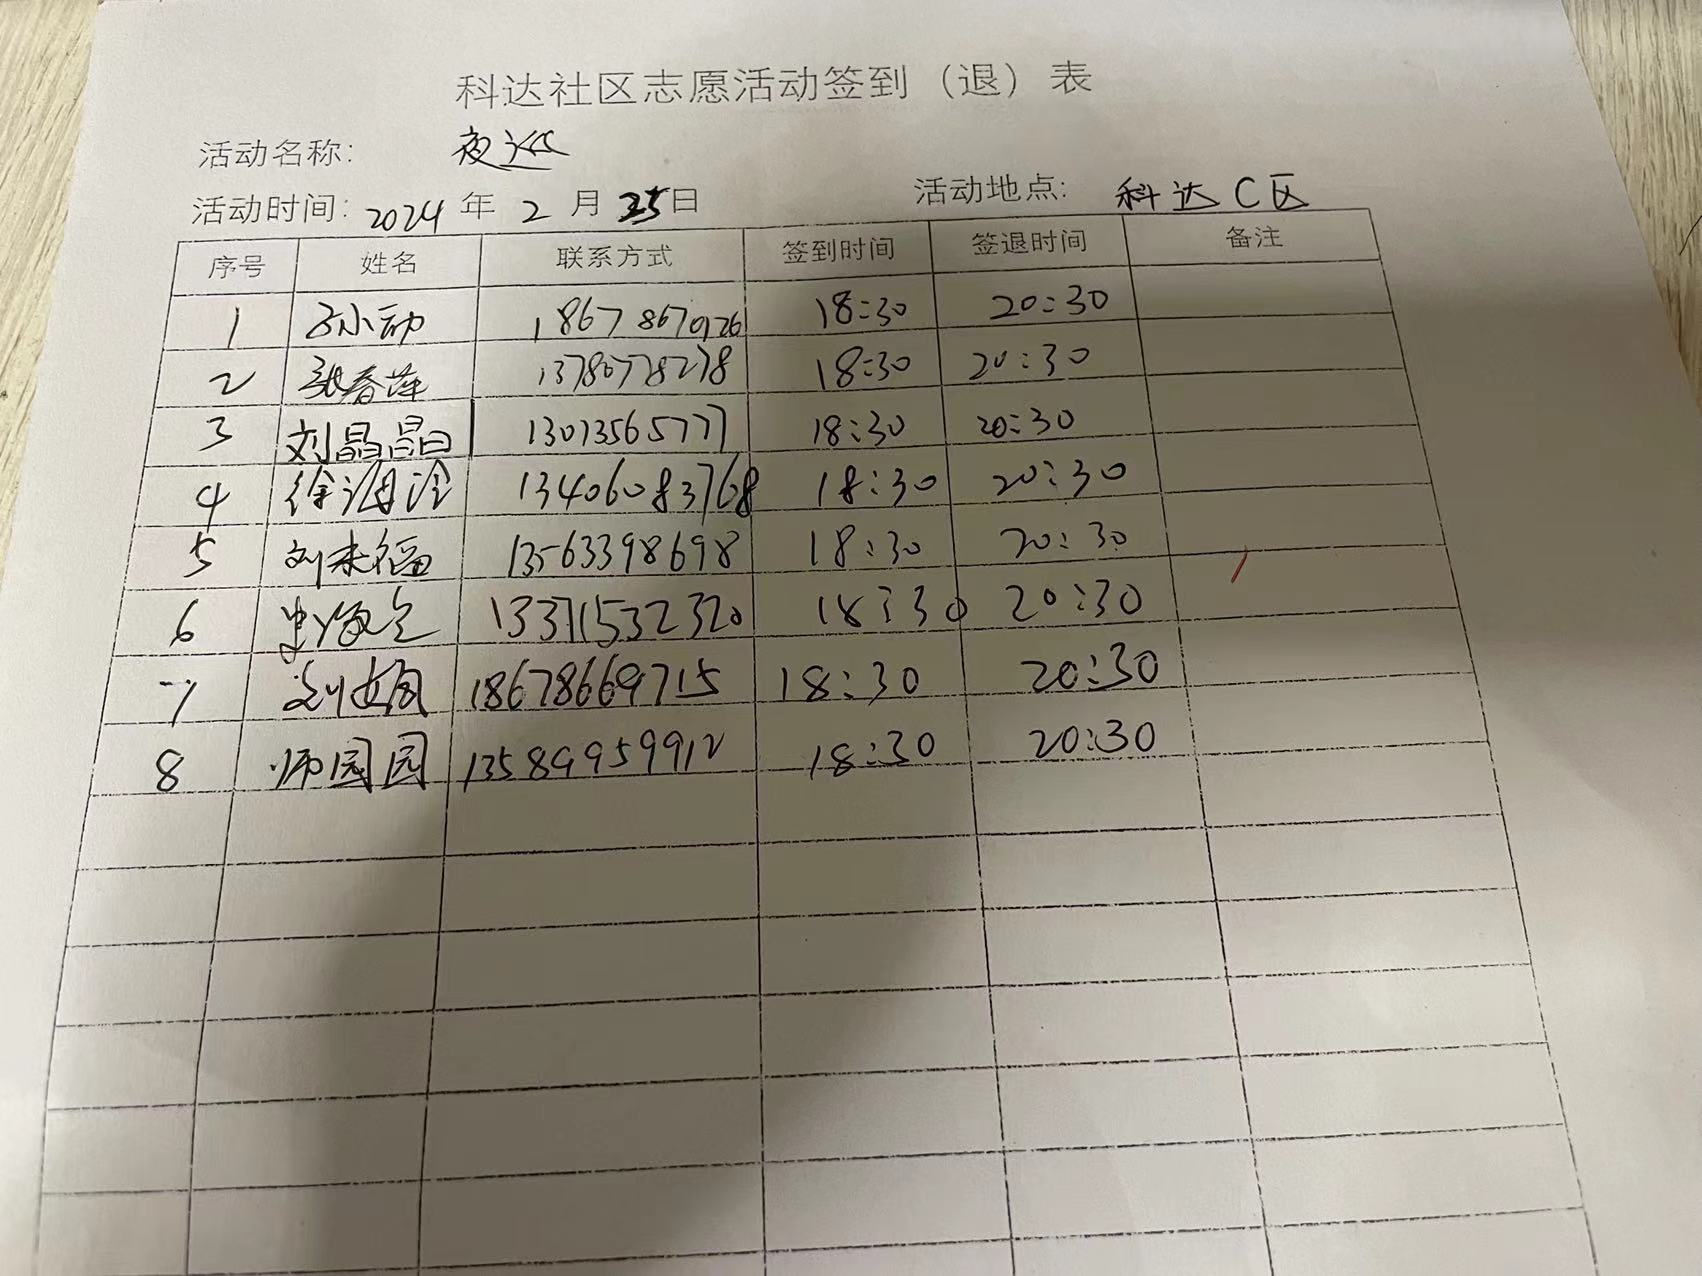 科达社区志愿活动签到（退）表
活动名称： 夜巡
活动时间： 2024 年 2 月 25 日 活动地点： 科达C区
序号 姓名 联系方式 签到时间 签退时间 备注
1 18678670926 18:30 20:30
2 张春萍 13780778278 18:30 20:30
3 刘晶晶 13013565777 18:30 20:30
4 徐 13406083768 18:30 20:30
5 刘来福 13563398698 18:30 20:30
6 13371532320 18:30 20:30
7 刘娟 18678669715 18:30 20:30
8 师园园 13589959912 18:30 20:30